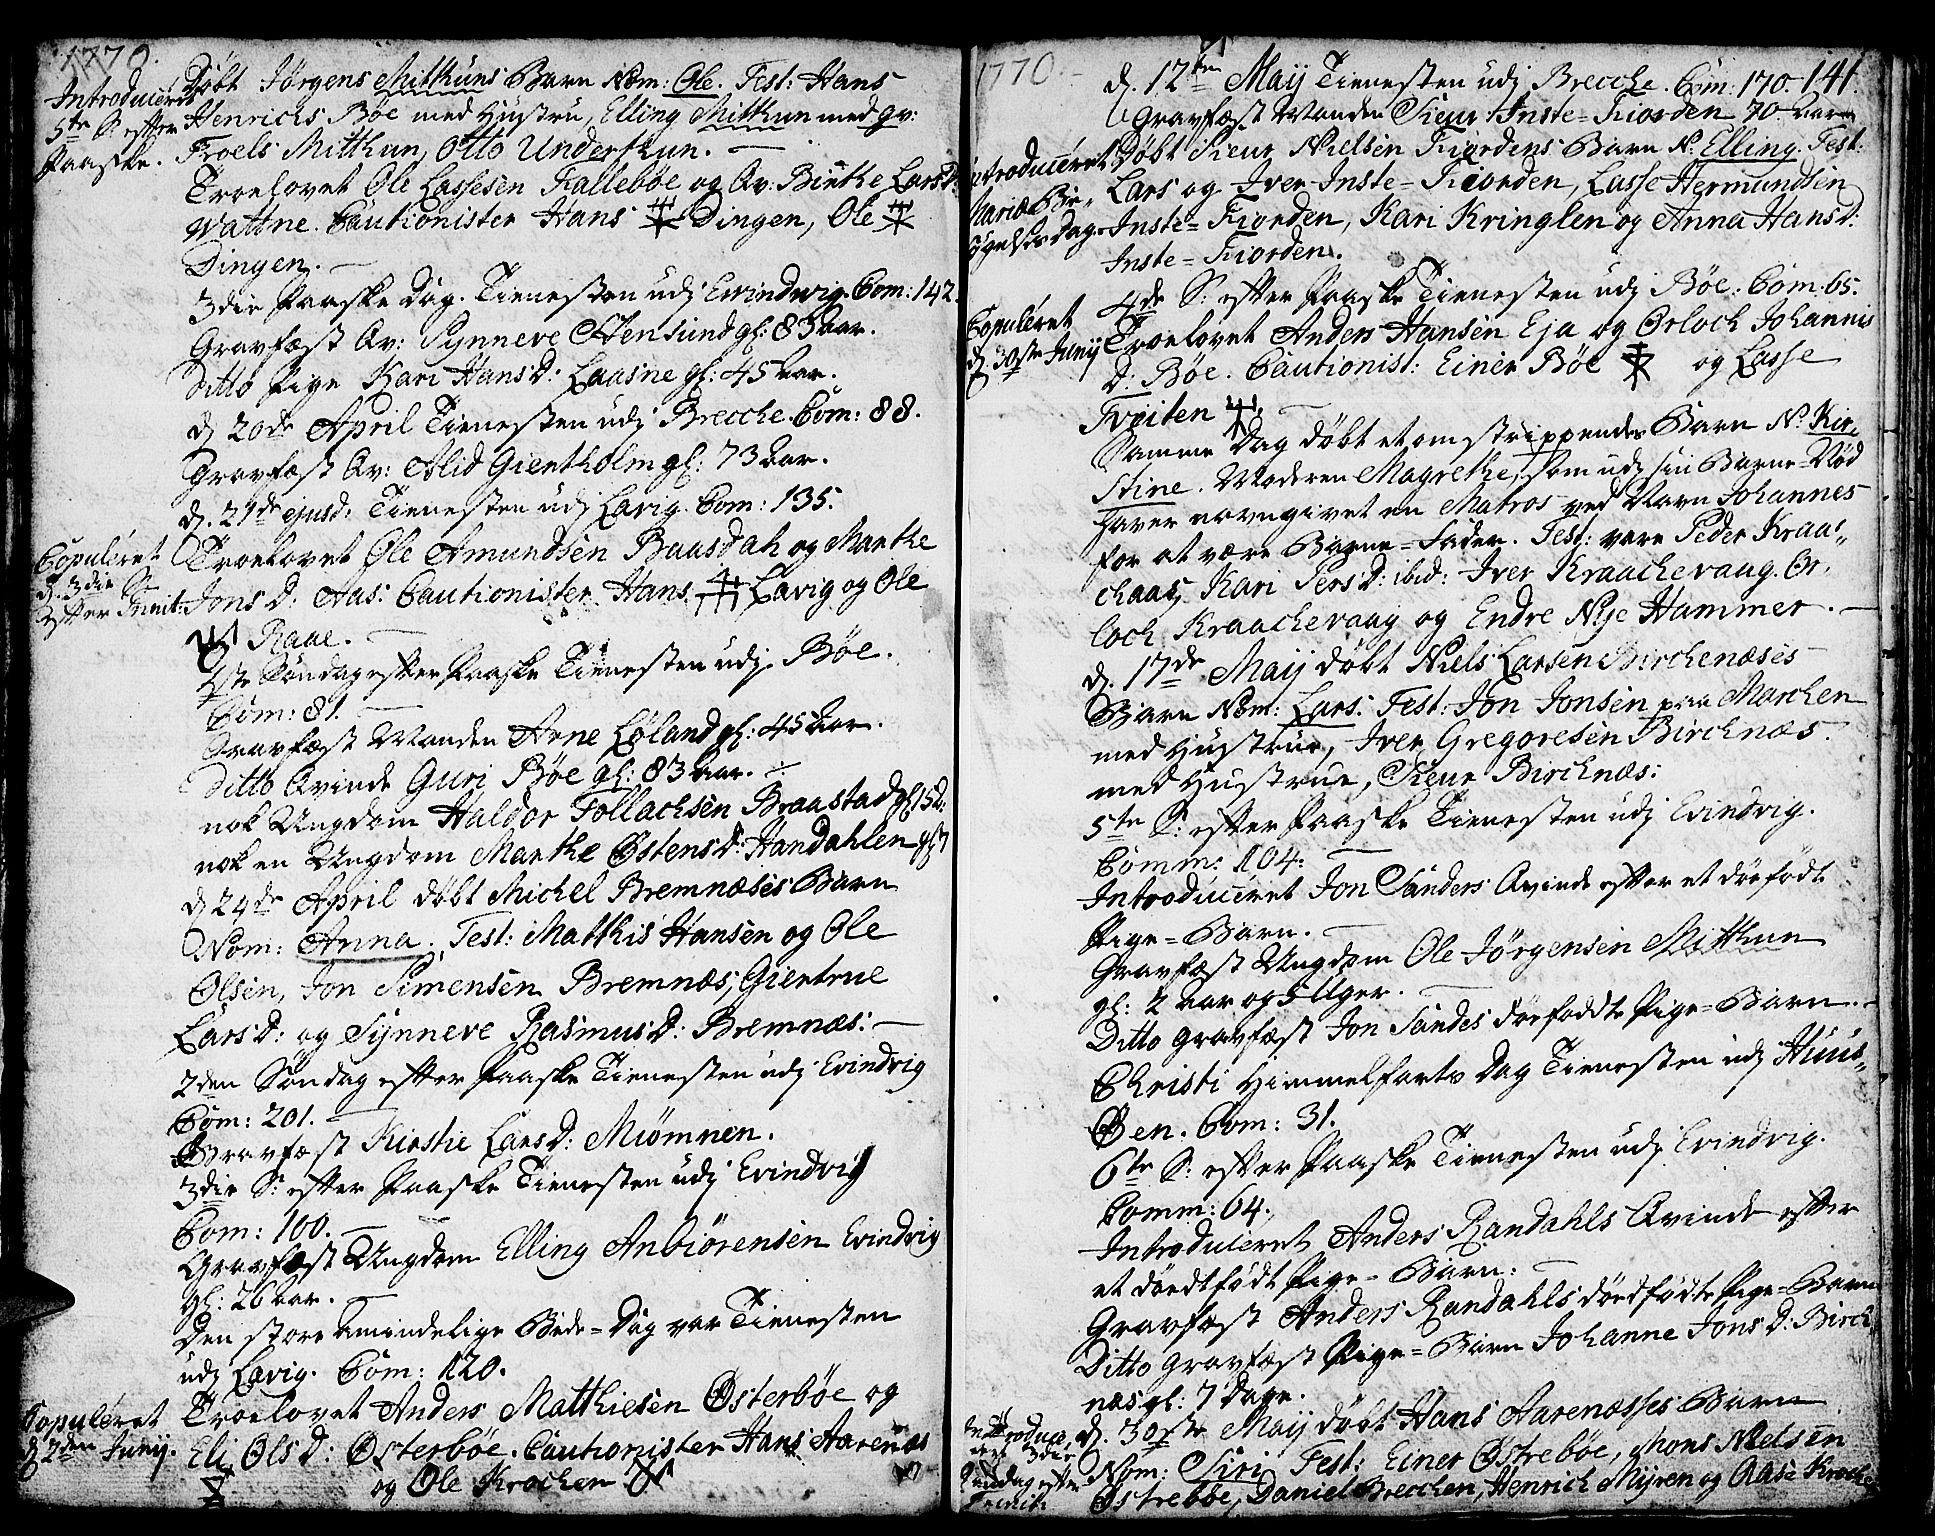 1770.
Døbt Jørgens Mitthuns Barn Nom: Ole. Test: Hans
Introduceret
5te S: efter
Paaske.
Henrichs Bøe med Hustru, Elling Mitthun med qv:
Troels Mitthun, Otto Underthun. —
Troelovet Ole Lassesen Kallebøe og Qv: Birthe Larsd:
Wattne. Cautionister Hans Dingen, Ole
Dingen. —
3die Paaske Dag. Tienesten udj Evindvig. Com: 142.
Gravfæst Qv: Synneve Steensund gl: 83 aar.
Ditto Pige Kari Hans D: Laasne gl: 45 aar.
d. 20de April Tienesten udj Brecche. Com: 88.
Gravfæst Qv: Alid Gientholm gl: 73 aar.
d. 21de ejusd: Tienesten udj Lavig. Com: 135.
Copuleret
d. 3die S:
efter Trinit:
Troelovet Ole Amundsen Baasdah og Marthe
Jons D. Aas: Cautionister Hans Lavig og Ole
Raae. —
1ste Søndag efter Paaske Tienesten udj Bøe.
Com: 81. —
Gravfæst Manden Arne Løland gl: 45 aar.
Ditto Qvinde Guri Bøe gl: 83 aar.
nok Ungdom Haldor Follachsen Braastad
nok en Ungdom Marthe Østens D: Handahlen
d. 24de April døbt Michel Bremnæses Barn
Nom: Anna. Test: Matthis Hansen og Ole
Olsen, Jon Simensen Bremnæs, Giertrue
Lars D: og Synneve Rasmus D: Bremnæs: —
2den Søndag efter Paaske Tienesten udj Evindvig
Com: 201. —
Gravfæst Kirstie Lars D: Miømnen.
3die S: efter Paaske Tienesten udj Evindvig
Com: 100. —
Gravfæst Ungdom Elling Anbiørensen Evindvig
gl: 26 aar. —
Den store almindelige Bede-Dag var Tienesten
udj Lavig. Com: 120.
Copuleret
d. 2den Junij.
Troelovet Anders Matthiesen Østerbøe og
Eli Ols D: Østerbøe. Cautionister Hans Aarenæs
og Ole Krochen
1770
141.
d. 12te Maij Tienesten udj Brecche. Com: 170.
Gravfæst Manden Sieur Inste-Fiorden 70 aar
Introduceret
Mariæ Be-
søgelses Dag
Døbt Sieur Nielsen Fiordens Barn N: Elling. Test:
Lars og Iver Inste-Fiorden, Lasse Hermundsen
Inste-Fiorden, Kari Kringlen og Anna Hans D:
Inste-Fiorden.
4de S: efter Paaske Tienesten udj Bøe. Com: 65.
Copuleret
d. 30te Junij
Troelovet Anders Hansen Eja og Ørloch Johannis
D: Bøe. Cautionist: Einer Bøe og Lasse
Tveiten —
Samme Dag døbt et omstrippendes Barn N: Kir-
stine. Moderen Magrethe, som udj sin Barne-Nød
haver navngivet en Matros ved Navn Johannes
for at være Barne-Fader. Test: vare Peder Kraa-
chaas, Kari Pers D: ibid: Iver Kraachevaag. Ør-
loch Kraachevaag og Endre Nye Hammer. —
d. 17de Maij døbt Niels Larsen Birchenæses
Barn Nom: Lars. Test: Jon Jonsen paa Marchen
med Hustrue, Iver Gregoresen Birchnæs.
med Hustrue, Sieur Birchnæs:
5te S: efter Paaske Tienesten udj Evindvig.
Comm: 104. —
Introduceret Jon Sanders Qvinde efter et dødfødt
Pige-Barn. —
Gravfæst Ungdom Ole Jørgensen Mitthun
gl: 2 aar og 5 Uger. —
Ditto gravfæst Jon Sandes dødfødte Pige-Barn. —
Christi Himmelfarts Dag Tienesten udj Huus-
Øen. Com: 31.
6te S: efter Paaske Tienesten udj Evindvig.
Comm: 64.
Introduceret Anders Randahls Qvinde efter
et dødfødt Pige-Barn: —
Gravfæst Anders Randahls dødfødte Pige-Barn
Ditto gravfæst Pige-Barn Johanne Jons D: Birch-
næs gl: 7 Dage.
Introduce-
ret 3die
Søndag efter
Trinit:
d. 30te Maij døbt Hans Aarenæsses Barn
Nom: Siri. Test: Einer Østrebøe, Mons Nielsen
Østrebøe, Daniel Brecchen, Henrich Myren og Aase Kroche